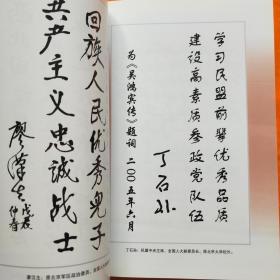 回族人民优秀儿子
共产主义忠诚战士
廖汉生
仲春
廖汉生：原北京军区政治委员、全国人大
学习民盟前辈优秀品质
建设高素质参政党队伍
为《吴鸿宾传》题词
二〇〇五年六月
丁石孙
丁石孙：民盟中央主席、全国人大副委员长、原北京大学校长。